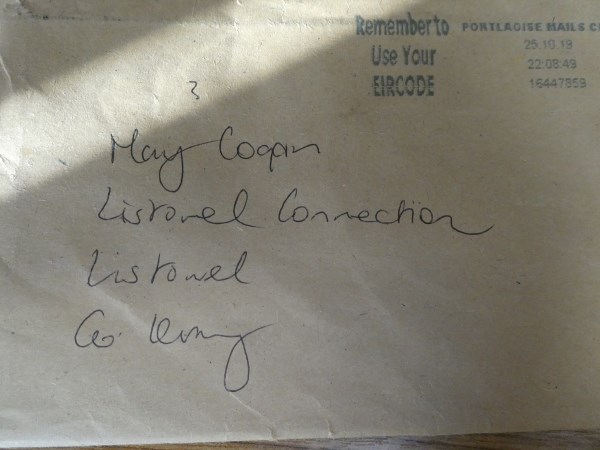 Remember to
Use Your
EIRCODE
PORTLAOISE MAILS C
25.10.19
22:08:49
16447859
3
Mary Cogan
Listowel Connection
Listowel
Co. Kerry